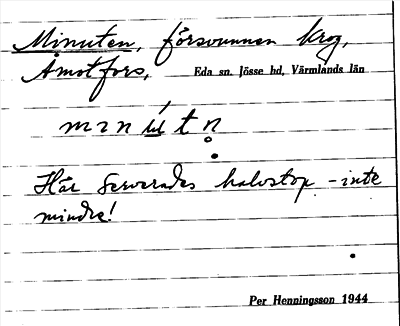 Minuten, försvunnen krog,
Åmotfors,
Eda sn. Jösse hd, Värmlands län
Här serverades halvstop - inte
mindre!
Per Henningsson 1944